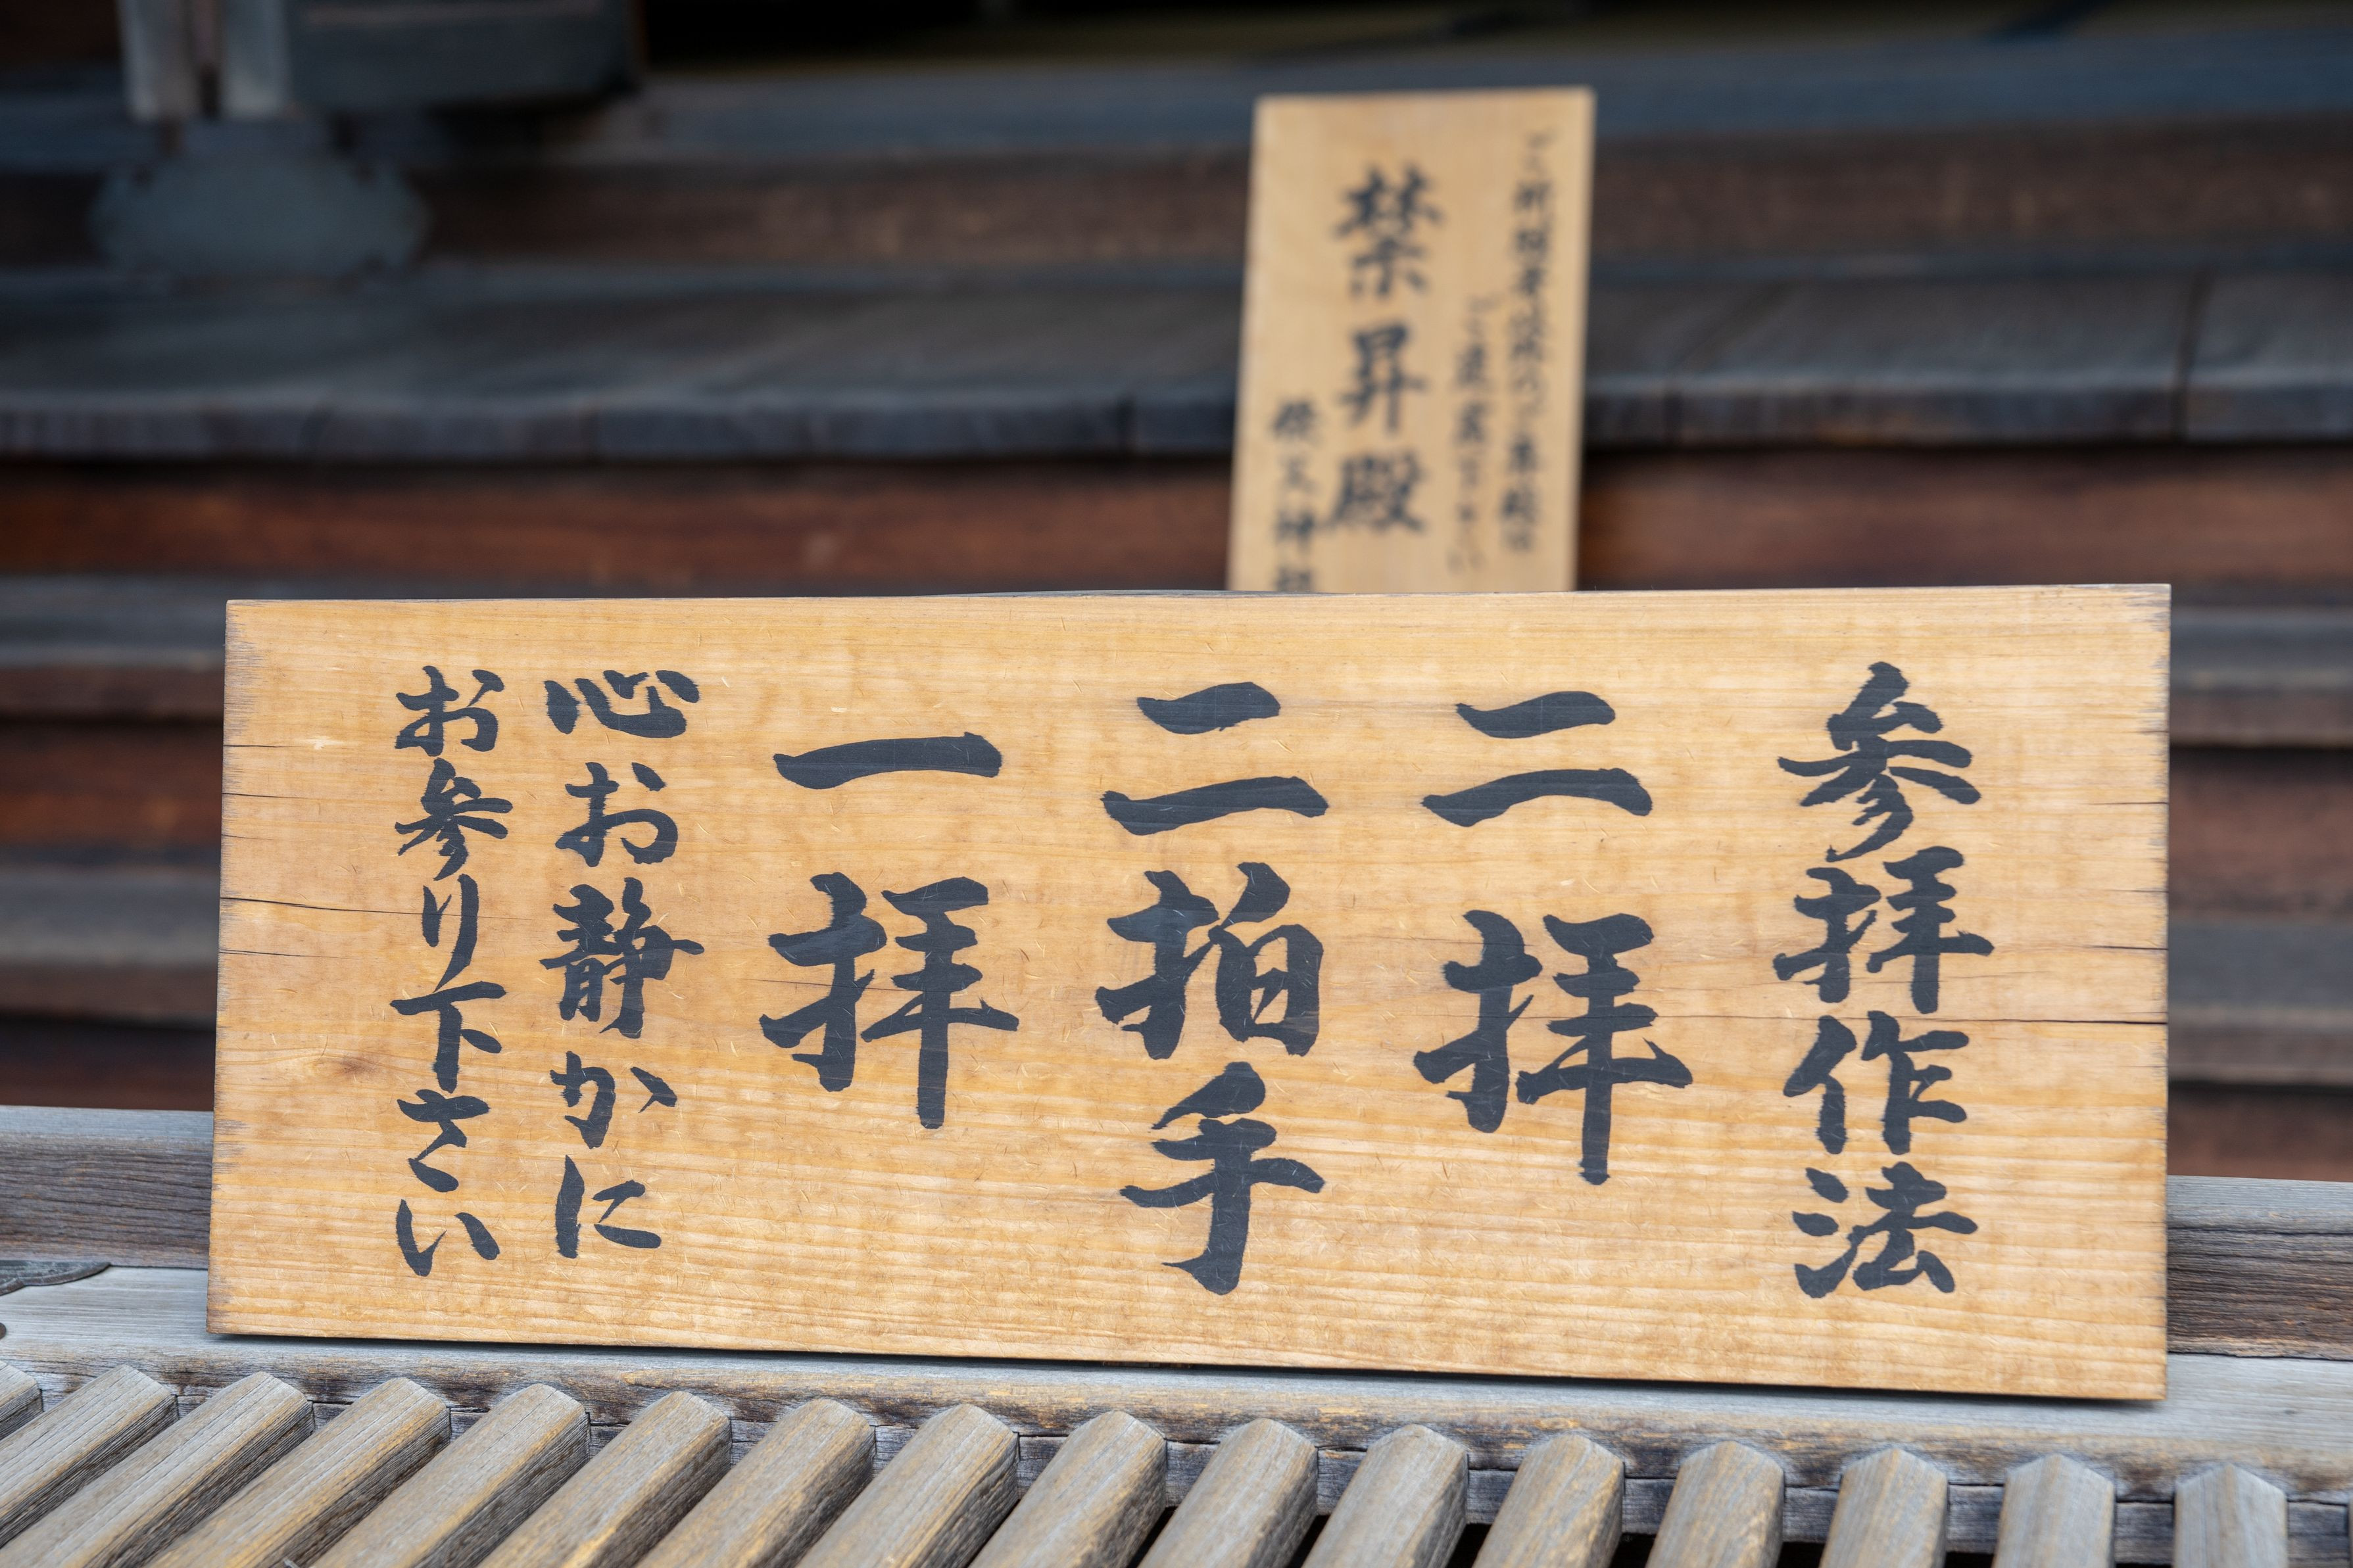 参拝作法
二拝
二拍手
一拝
心お静かに
お参り下さい
禁昇殿